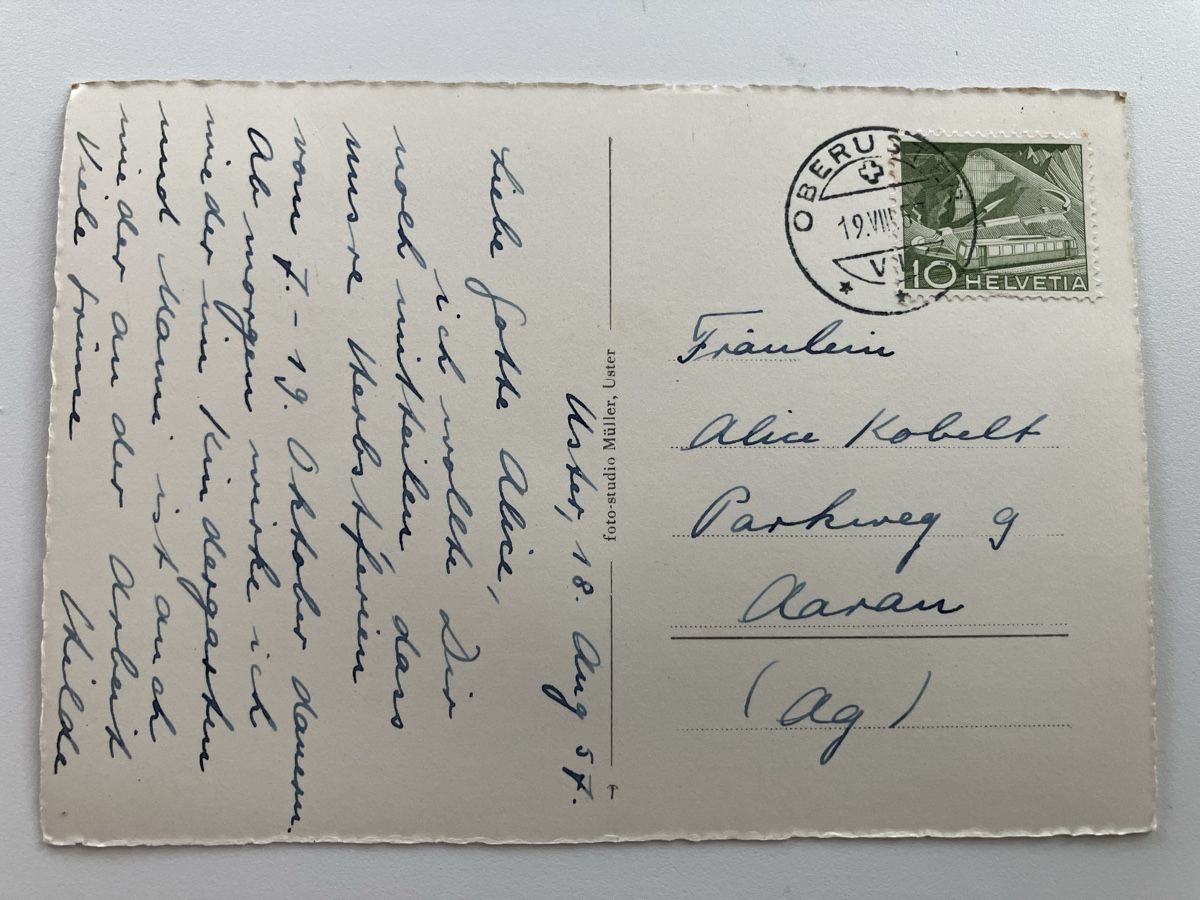 Uster, 18. Aug 57.
Liebe Gotte Alice,
ich wollte Dir
noch mitteilen dass
unsre Herbstferien
vom 7. - 19. Oktober dauern.
Ab morgen wirke ich
wieder im Kindergarten
und Mami ist auch
wieder an der Arbeit
Viele Grüsse Hilde
foto-studio Müller, Uster
OBERUSTER
19.VIII.57
10 HELVETIA
Fräulein
Alice Kobelt
Parkweg 9
Aarau
(Ag)